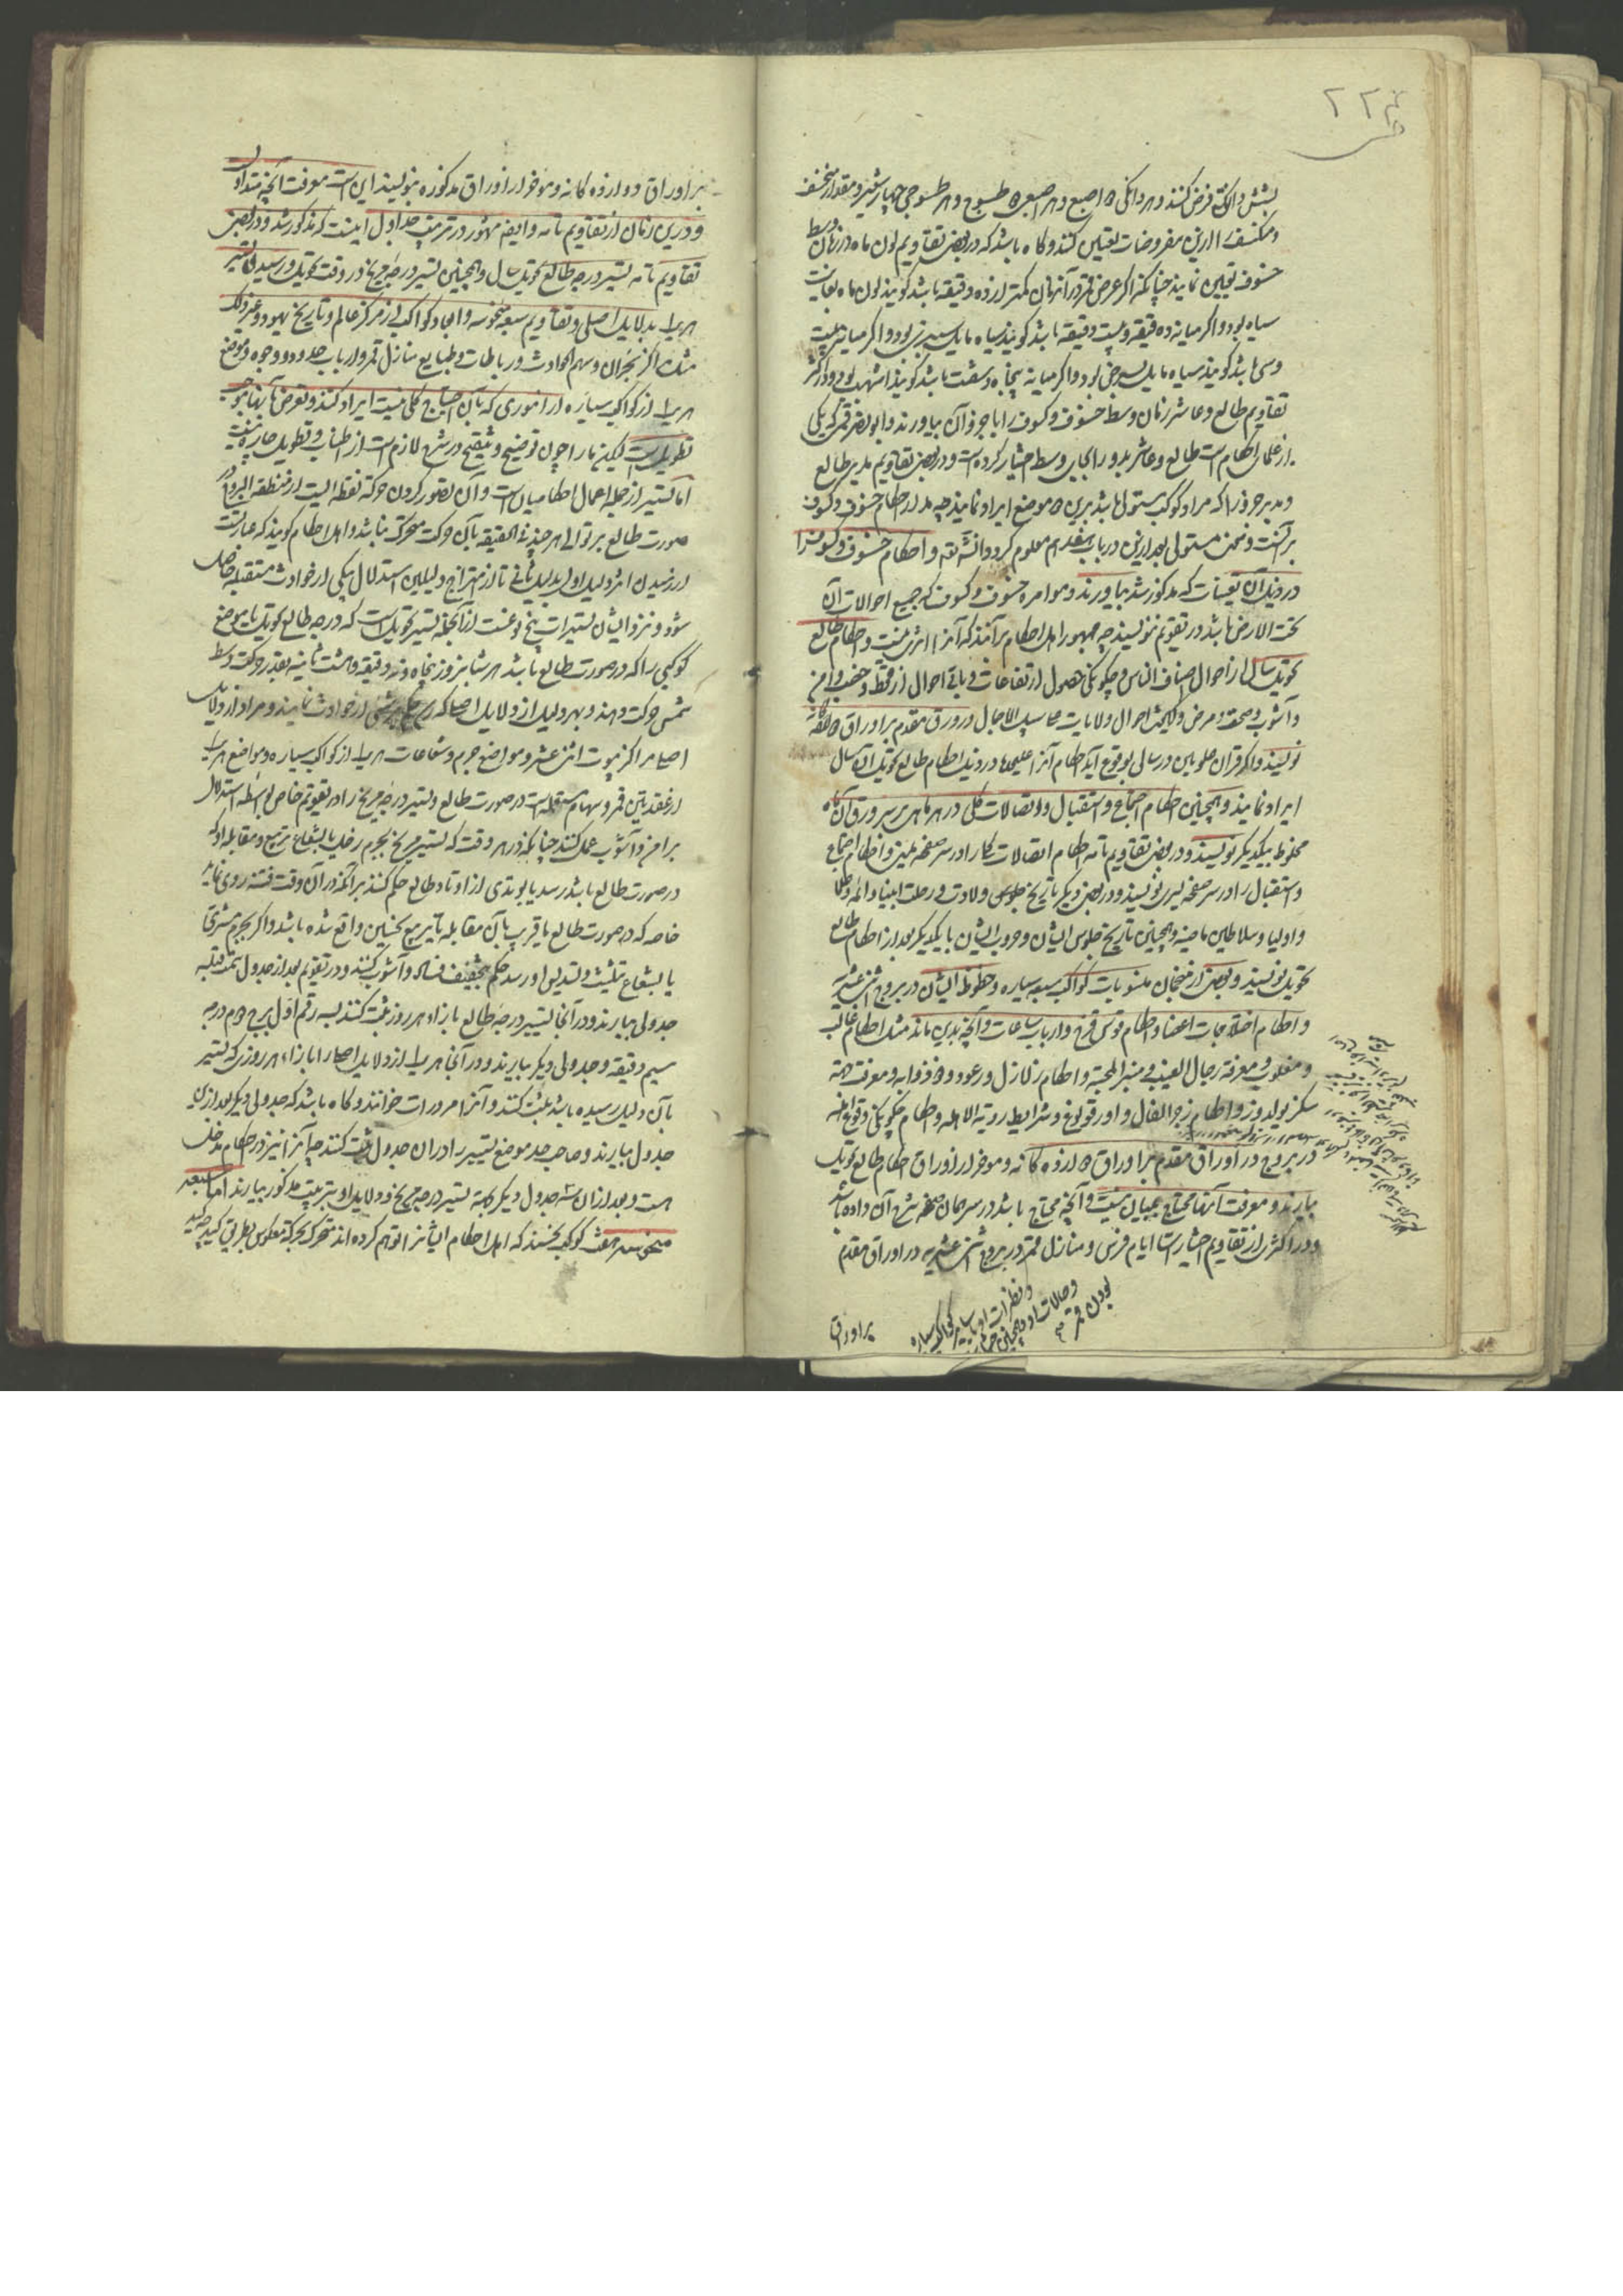 بشش دانک فرض کنند و هر دانکی ۲ اصبع و هر اصبعی ۲ طسوج و هر طسوجی چهار شعیر و مقدار منخسف
و منکسف را ازین مفروضات تعیین کنند و کاه باشد که در بعض تقاویم لون ماه در زمان وسط
خسوف تعیین نمایند چنانکه اگر عرض قمر در آنزمان کمتر از ده دقیقه باشد کویند لون ماه بغایت
سیاه بود و اگر میانه ده دقیقه و بیست دقیقه باشد کویند سیاه مایل بسبزی بود و اگر میانه بیست
و سی باشد کویند سیاه مایل بسرخی بود و اگر میانه پنجاه و شصت باشد کویند اشهب بود و در اکثر
تقاویم طالع و عاشر زمان وسط خسوف و کسوف را با جزو آن بیاورند و ابو نصر قمی که یکی
از علمای احکام است طالع و عاشر بدو را بجای وسط اختیار کرده است و در بعض تقاویم مدبر طالع
و مدبر جزو را که مراد کوکب مستولی باشد برین ۲ موضع ایراد نمایند چه مدار احکام خسوف و کسوف
بر آنست و سخن مستولی بعد ازین در باب هفدهم معلوم کردد انشآ الله و احکام خسوف و کسوف را
در ذیل آن تعینات که مذکور شد بیاورند و موامره خسوف و کسوف که جمیع احوالات آن
تحت الارض باشد در تقویم ننویسند چه جمهور اهل احکام برآنند که آنرا اثری نیست و احکام طالع
تحویل سال از احوال اصناف الناس و چکونکی حصول ارتفاعات و باقی احوال از قحط و خصب و امن
و آشوب و صحت و مرض و کیفیت احوال ولایات علی سبیل الاجمال در ورق مقدم بر اوراق ۱۲ کانه
نویسند و اگر قران علویین در سالی بوقوع آید احکام آنرا علیحده در ذیل احکام طالع تحویل آن سال
ایراد نمایند و همچنین احکام اجتماع و استقبال و اتصالات کلی در هر ماهی بر سر ورق آن ماه
مخلوط بیکدیکر نویسند و در بعض تقاویم تامه احکام اتصالات کلی را در سر صفحه یمین و احکام اجتماع
و استقبال را در سر صفحه یسری نویسند و در بعض دیکر تاریخ جلوس و ولادت و رحلت انبیا و ائمه و خلفا
و اولیا و سلاطین ماضیه و همچنین تاریخ جلوس ایشان و حروب ایشان با یکدیکر بعد از احکام طالع
تحویل نویسند و بعض از منجمان منسوبات کواکب سبعه سیاره و حظوظ ایشان در بروج اثنی عشریه
و احکام اختلاجات اعضا و احکام قوس قزح و ارباب ساعات و آنچه بدین ماند مثل احکام غالب
و مغلوب و معرفة رجال الغیب و منبر المحبة و احکام زلازل و رعود و ۲ ذوابه و معرفت همه
سکز یولدوز و احکام زجر الفال و اور قویونغ و شرایط رویة الاهله و احکام چکونکی وقوع اهله
در بروج در اوراق مقدم بر اوراق ۱۲ کانه و موخر از اوراق احکام طالع تحویل
بیارند و معرفت آنها محتاج ببیان نیست و آنچه محتاج باشد در سر همان صفحه شرح آن داده باشد
و در اکثری از تقاویم اختیارات ایام فرس و منازل قمر در بروج اثنی عشریه در اوراق مقدم
بودن قمر
و حالات او و همچنین
و نظرات او با سایر کواکب سیاره
بر اوراق
بر اوراق دوازده کانه و موخر از اوراق مذکوره بنویسند این است معرفت آنچه متداول
و درین زمان از تقاویم تامه و ایضا مشهور در ترتیب جداول اینست که مذکور شد و در بعض
تقاویم تامه تسییر درجه طالع تحویل سال و همچنین تسییر درجه مریخ در وقت تحویل و رسیدن تسییر
هر یک بدلایل اصلی و تقاویم سبعه منحوسه و ابعاد کواکب از مرکز عالم و تاریخ یهود و غیر ذلک
مثل مراکز بحران و سهم الحوادث و رباطات و طبایع منازل قمر و ارباب حدود و وجوه و موضع
هر یک از کواکب سیاره از اموری که بآن احتیاج کلی نیست ایراد کنند و تعرض بآنها موجب
تطویل است لیکن ما را چون توضیح و تنقیح در شرح لازم است از اطناب و تطویل چاره نیست
اما تسییر از جمله اعمال احکامیان است و آن تصور کردن حرکة نقطه ایست از منطقه البروج
صورت طالع بر توالی هر چند فی الحقیقه بآن حرکت متحرک نباشد و اهل احکام کویند که عبارتست
از رسیدن اثر دلیل اول بدلیل ثانی تا از امتزاج دلیلین استدلال بیکی از حوادث مستقبله حاصل
شود و نزد ایشان تسییرات پنج نوعست از آنجمله تسییر تحویل است که درجه طالع تحویل یا موضع
کوکبی را که در صورت طالع باشد هر شبانروز پنجاه و نه دقیقه و هشت ثانیه بقدر حرکت وسط
شمس حرکت دهند و بهر دلیل از دلایل اصلی که رسد حکم بر شیئی از حوادث نمایند و مراد از دلایل
اصلی مراکز بیوت اثنی عشر و مواضع جرم و شعاعات هر یک از کواکب سیاره و مواضع هر یک
از عقدتین قمر و سهام مستعمله است در صورت طالع و تسییر درجه مریخ را در تقویم خاص بواسطه استدلال
بر امن و آشوب عمل کنند چنانکه در هر وقت که تسییر مریخ بجرم زحل یا بشعاع تربیع و مقابله او که
در صورت طالع باشد رسد یا بوتدی از اوتاد طالع حکم کنند بر آنکه در آن وقت فتنه روی نماید
خاصه که در صورت طالع یا قریب بآن مقابله یا تربیع نحسین واقع شده باشد و اگر بجرم مشتری
یا بشعاع تثلیث و تسدیس او رسد حکم بتخفیف فساد و آشوب کنند و در تقویم بعد از جدول سمت قبله
جدولی بیارند و در آنجا تسییر درجه طالع بازاء هر روز ثبت کنند بسه رقم اول برج دوم درجه
سیم دقیقه و جدولی دیکر بیارند و در آنجا هر یک از دلایل اصلی را بازاء هر روزی که تسییر
بآن دلیل رسیده باشد ثبت کنند و آنرا ممرورات خوانند و کاه باشد که جدولی دیکر بعد ازین
جدول بیارند و صاحب حد موضع تسییر را در آن جدول ثبت کنند چه آنرا نیز در احکام مدخل
هست و بعد از آن سه جدول دیکر بجهة تسییر درجه مریخ و دلایل او بترتیب مذکور بیارند اما سبعه
منحوسه هفت کوکب نحسند که اهل احکام ایشانرا توهم کرده اند متحرک بحرکة معکوس بطریق کید چه کید